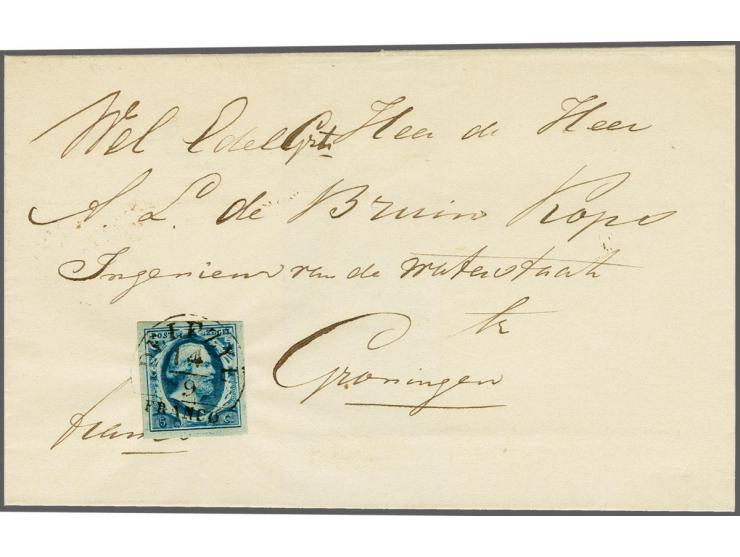 Wel Edel Gestr Heer de Heer
A. L. de Bruin Kops
Ingenieur van de waterstaat
te
Groningen
franco
POST
DELFZYL
14
9
FRANCO
5 C